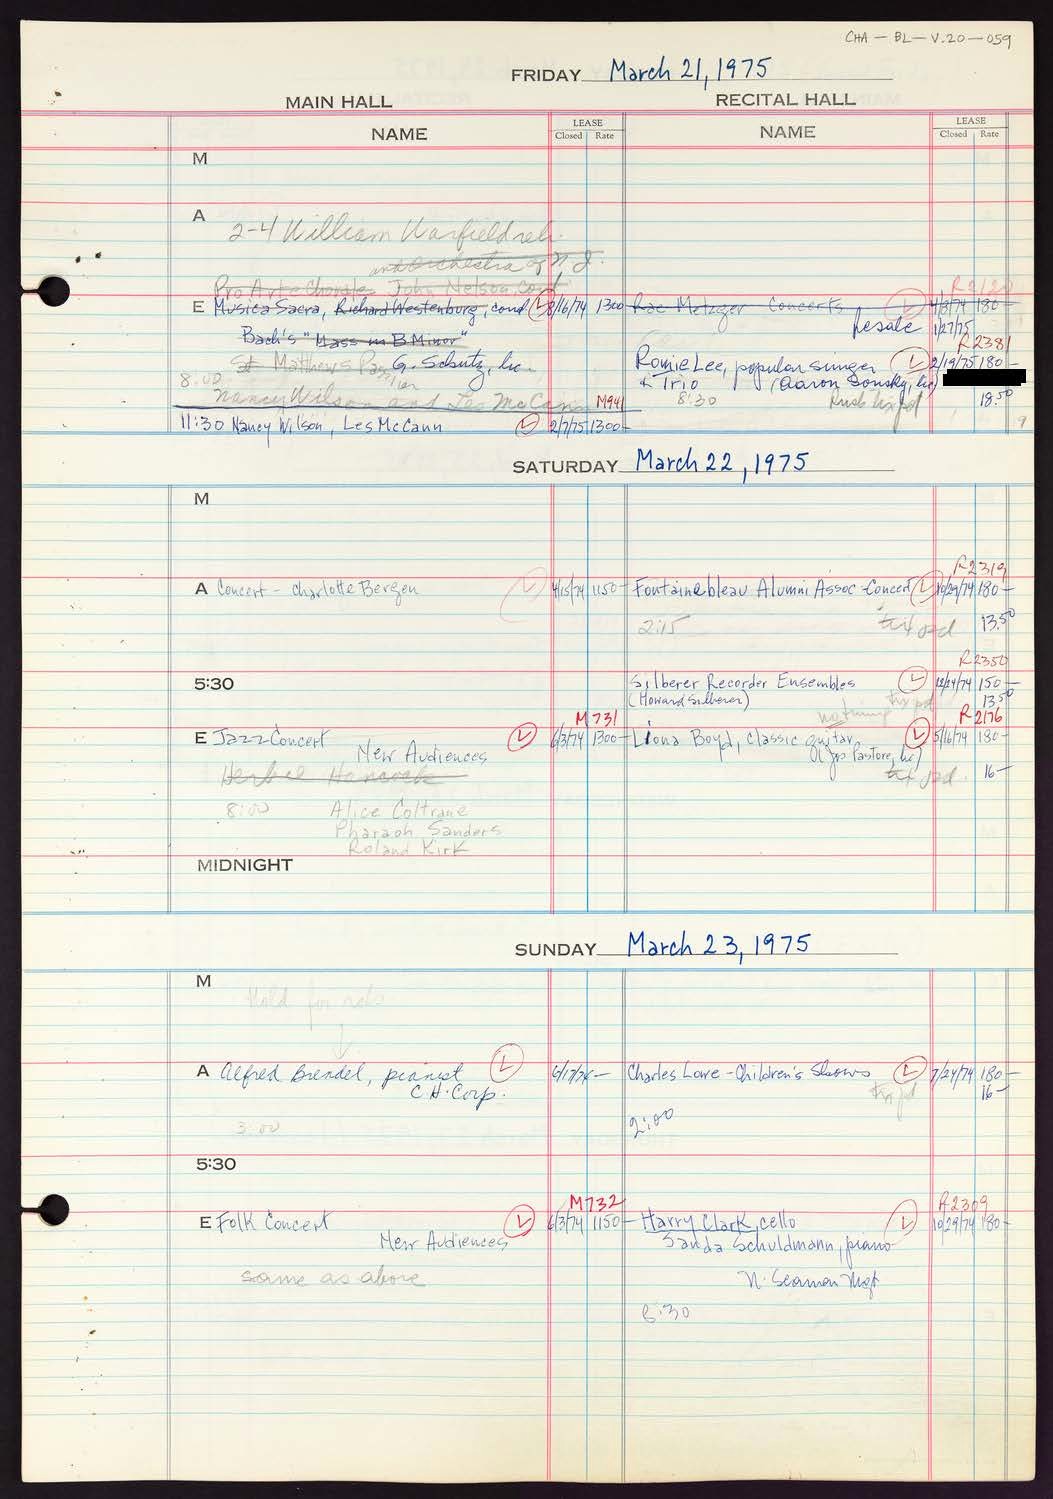 CHA - BL - V.20 - 059
FRIDAY March 21, 1975
MAIN HALL RECITAL HALL
NAME LEASE Closed Rate NAME LEASE Closed Rate
M
A
2-4 William Warfield reh.
and Orchestra of N.J.
Pro Arte Chorale John Nelson, cond
R2120
E Musica Sacra, Richard Westenburg, cond. L 8/16/74 1300 Rae Metzger Concerts L 4/3/74 180-
resale 1/27/75
Bach's "Mass in B Minor"
R2381
St Matthews Passion G. Schutz, Inc.
Romie Lee, popular singer L 2/19/75 180-
8:00
& Trio (Aaron Sonsky, Inc)
Nancy Wilson and Les McCann M941
8:30 18.50
11:30 Nancy Wilson, Les McCann L 2/7/75 1300-
9
SATURDAY March 22, 1975
M
R2319
A Concert - Charlotte Bergen L 4/15/74 1150- Fontainebleau Alumni Assoc - Concert L 10/29/74 180-
2:15 tix pd 13.50
R2350
5:30 Silberer Recorder Ensembles L 12/24/74 150-
(Howard Silberer) tix pd 13.50
M731 R2176
E Jazz Concert L 6/3/74 1300- Liona Boyd, classic guitar L 5/16/74 180-
New Audiences
Herbie Hancock tix pd. 16-
8:00 Alice Coltrane
Pharaoh Sanders
Roland Kirk
MIDNIGHT
SUNDAY March 23, 1975
M
Hold for reh
A Alfred Brendel, pianist L 6/17/74- Charles Lowe - Children's Shows L 7/24/74 180-
C.H. Corp. tix pd 16-
3:00 2:00
5:30
M732 R2309
E Folk Concert L 6/3/74 1150- Harry Clark, cello L 10/29/74 180-
New Audiences Sanda Schuldmann, piano
same as above N. Seaman Mgt
8:30